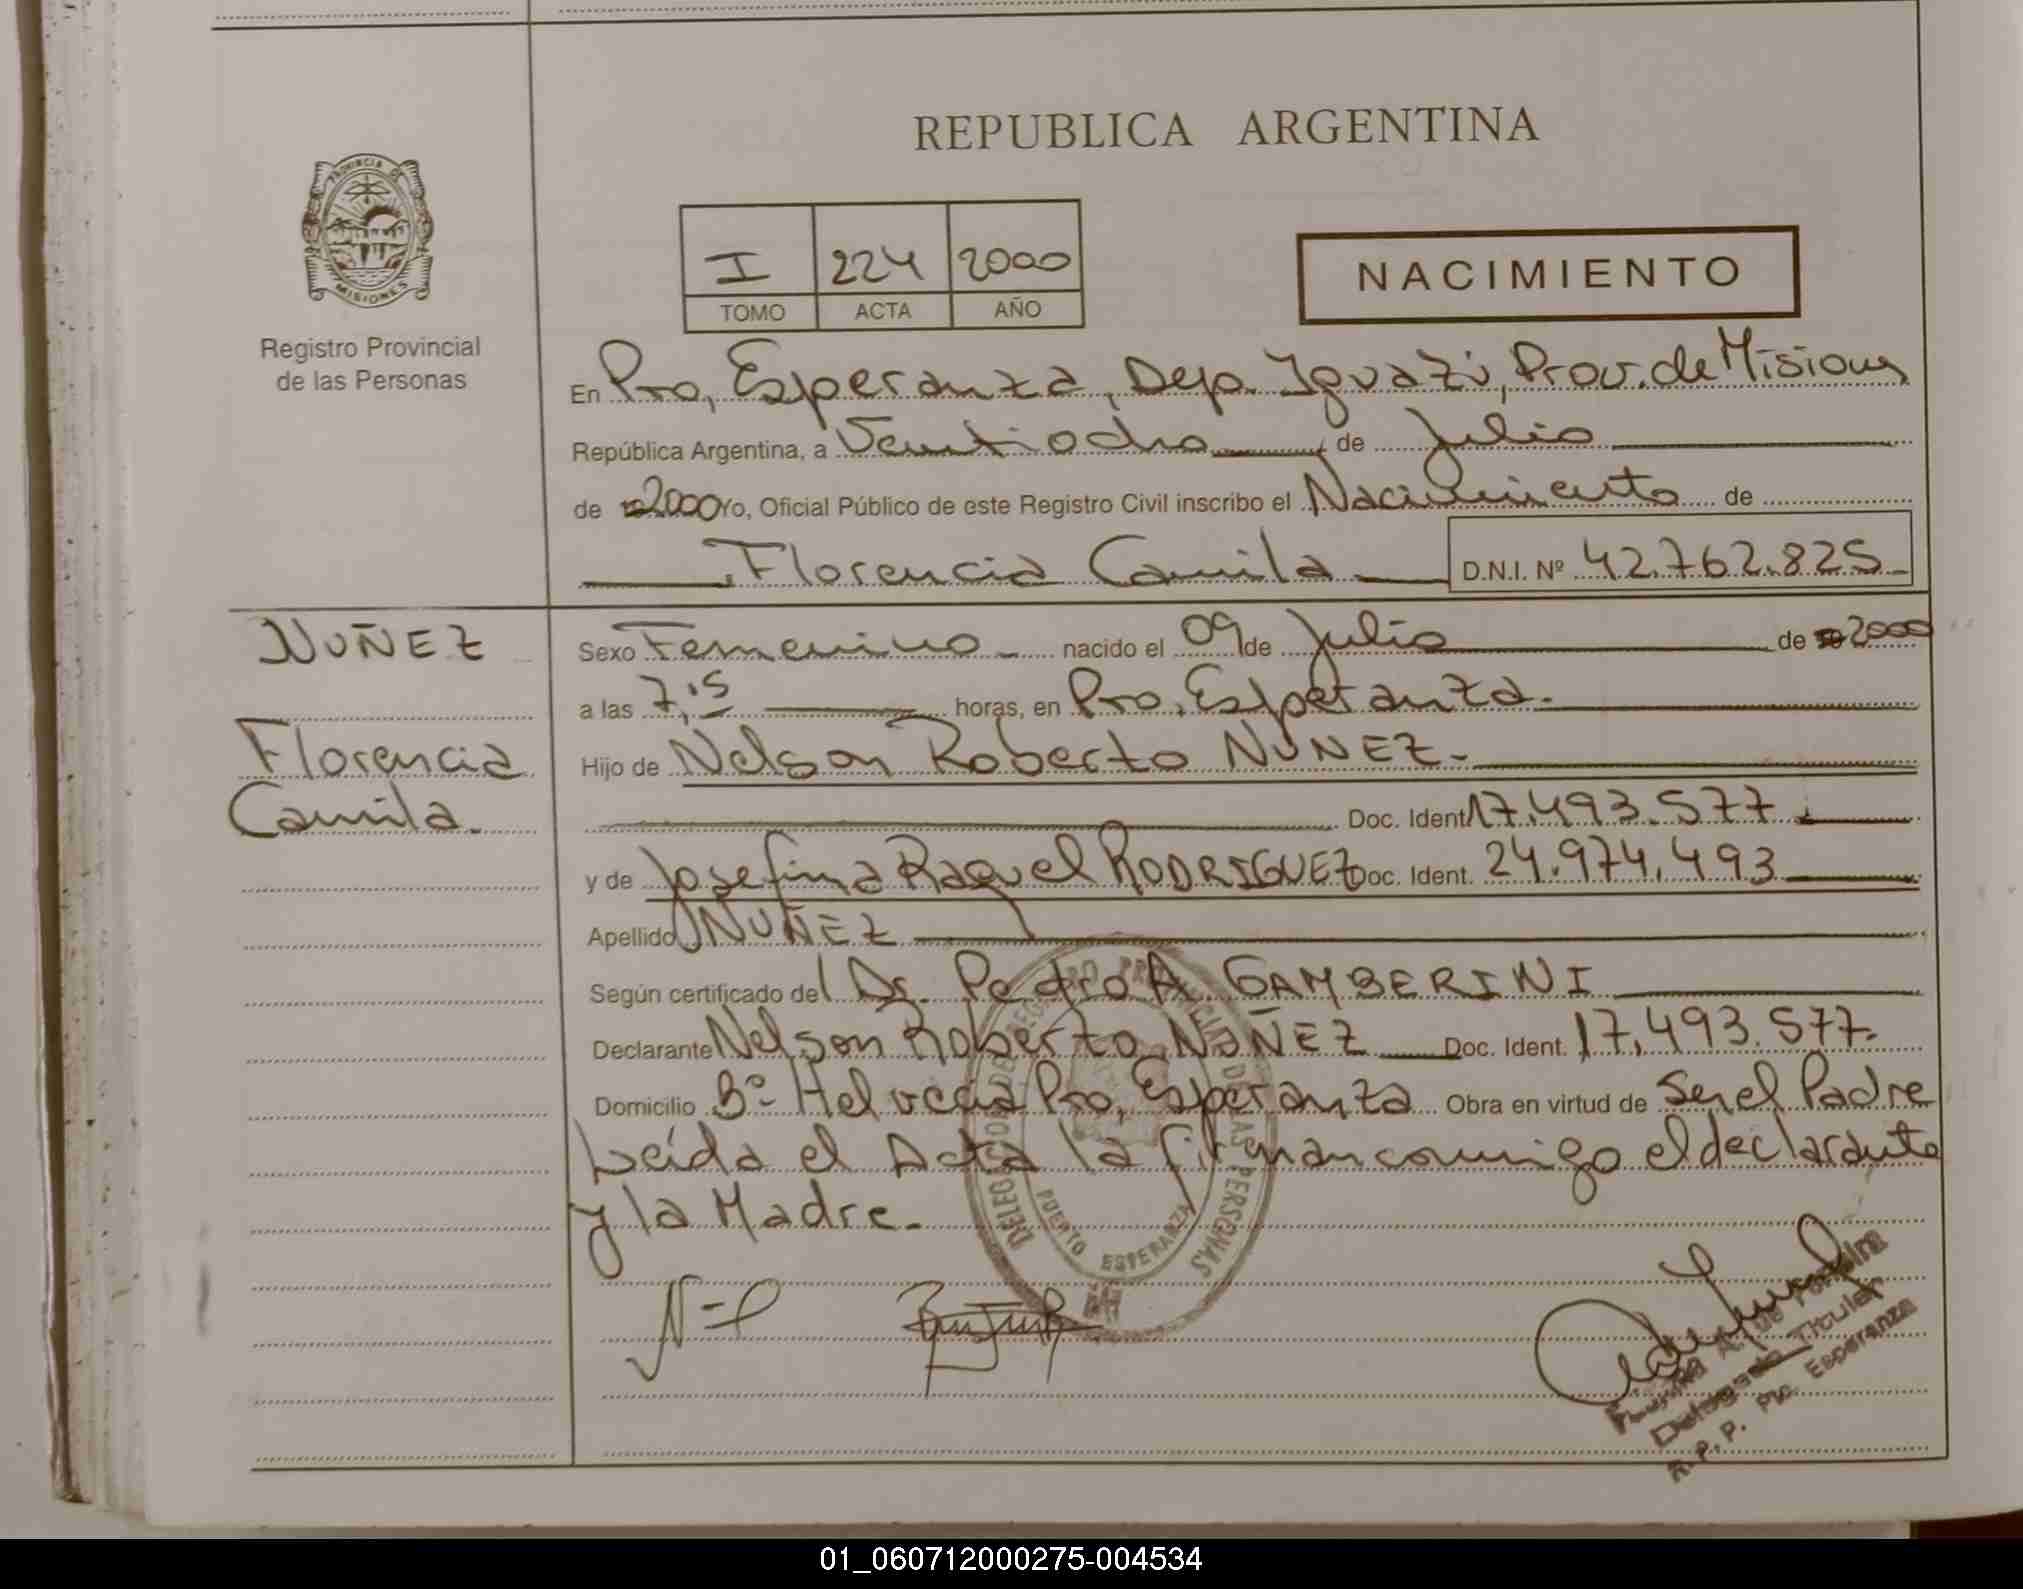 REPUBLICA ARGENTINA
PROVINCIA DE MISIONES
Registro Provincial
de las Personas
I 224 2000
TOMO ACTA AÑO
NACIMIENTO
En Pto, Esperanza, Dep. Iguazú, Prov. de Misiones
República Argentina, a Veintiocho de Julio
de 2000 Yo, Oficial Público de este Registro Civil inscribo el Nacimiento de
Florencia Camila D.N.I. Nº 42.762.825
NUÑEZ
Florencia
Camila.
Sexo Femenino nacido el 09 de Julio de 2000
a las 7,15 horas, en Pto. Esperanza.
Hijo de Nelson Roberto NUÑEZ.
Doc. Ident. 17.493.577
y de Josefina Raquel RODRIGUEZ Doc. Ident. 24.974.493
Apellido NUÑEZ
Según certificado del Dr. Pedro A. GAMBERINI
Declarante Nelson Roberto NUÑEZ Doc. Ident. 17.493.577.
Domicilio Bº Helvecia Pto, Esperanza Obra en virtud de Ser el Padre
Leída el Acta la firman conmigo el declarante
y la Madre.
PUERTO ESPERANZA
Delegada Titular
R.P.P. Pto. Esperanza
01_060712000275-004534